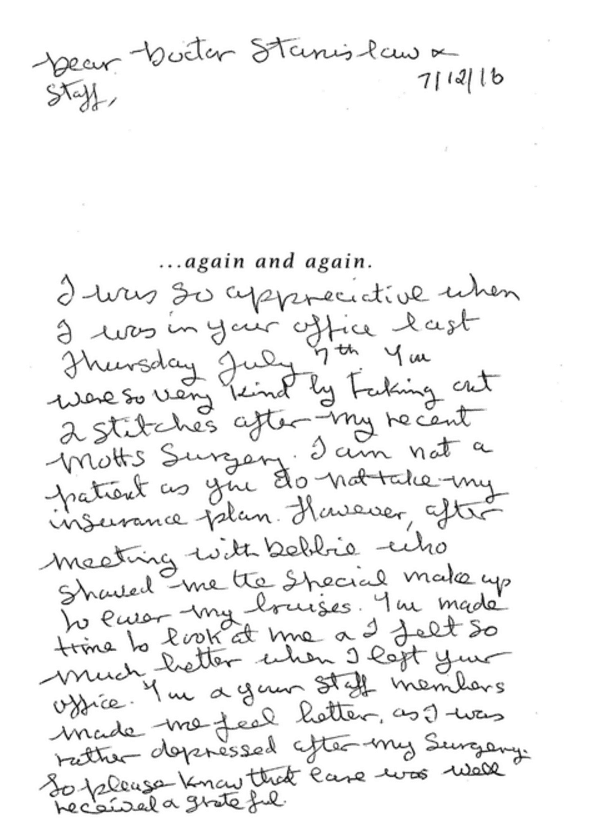 Dear Doctor Stanislaw &
Staff,
7/12/16
...again and again.
I was so appreciative when
I was in your office last
Thursday July 7th. You
were so very kind by taking out
2 stitches after my recent
MoHs Surgery. I am not a
patient as you do not take my
insurance plan. However, after
meeting with Debbie who
showed me the special make up
to cover my bruises. You made
time to look at me & I felt so
much better when I left your
office. You & your Staff members
made me feel better, as I was
rather depressed after my Surgery.
So please know that care was well
received & grateful.